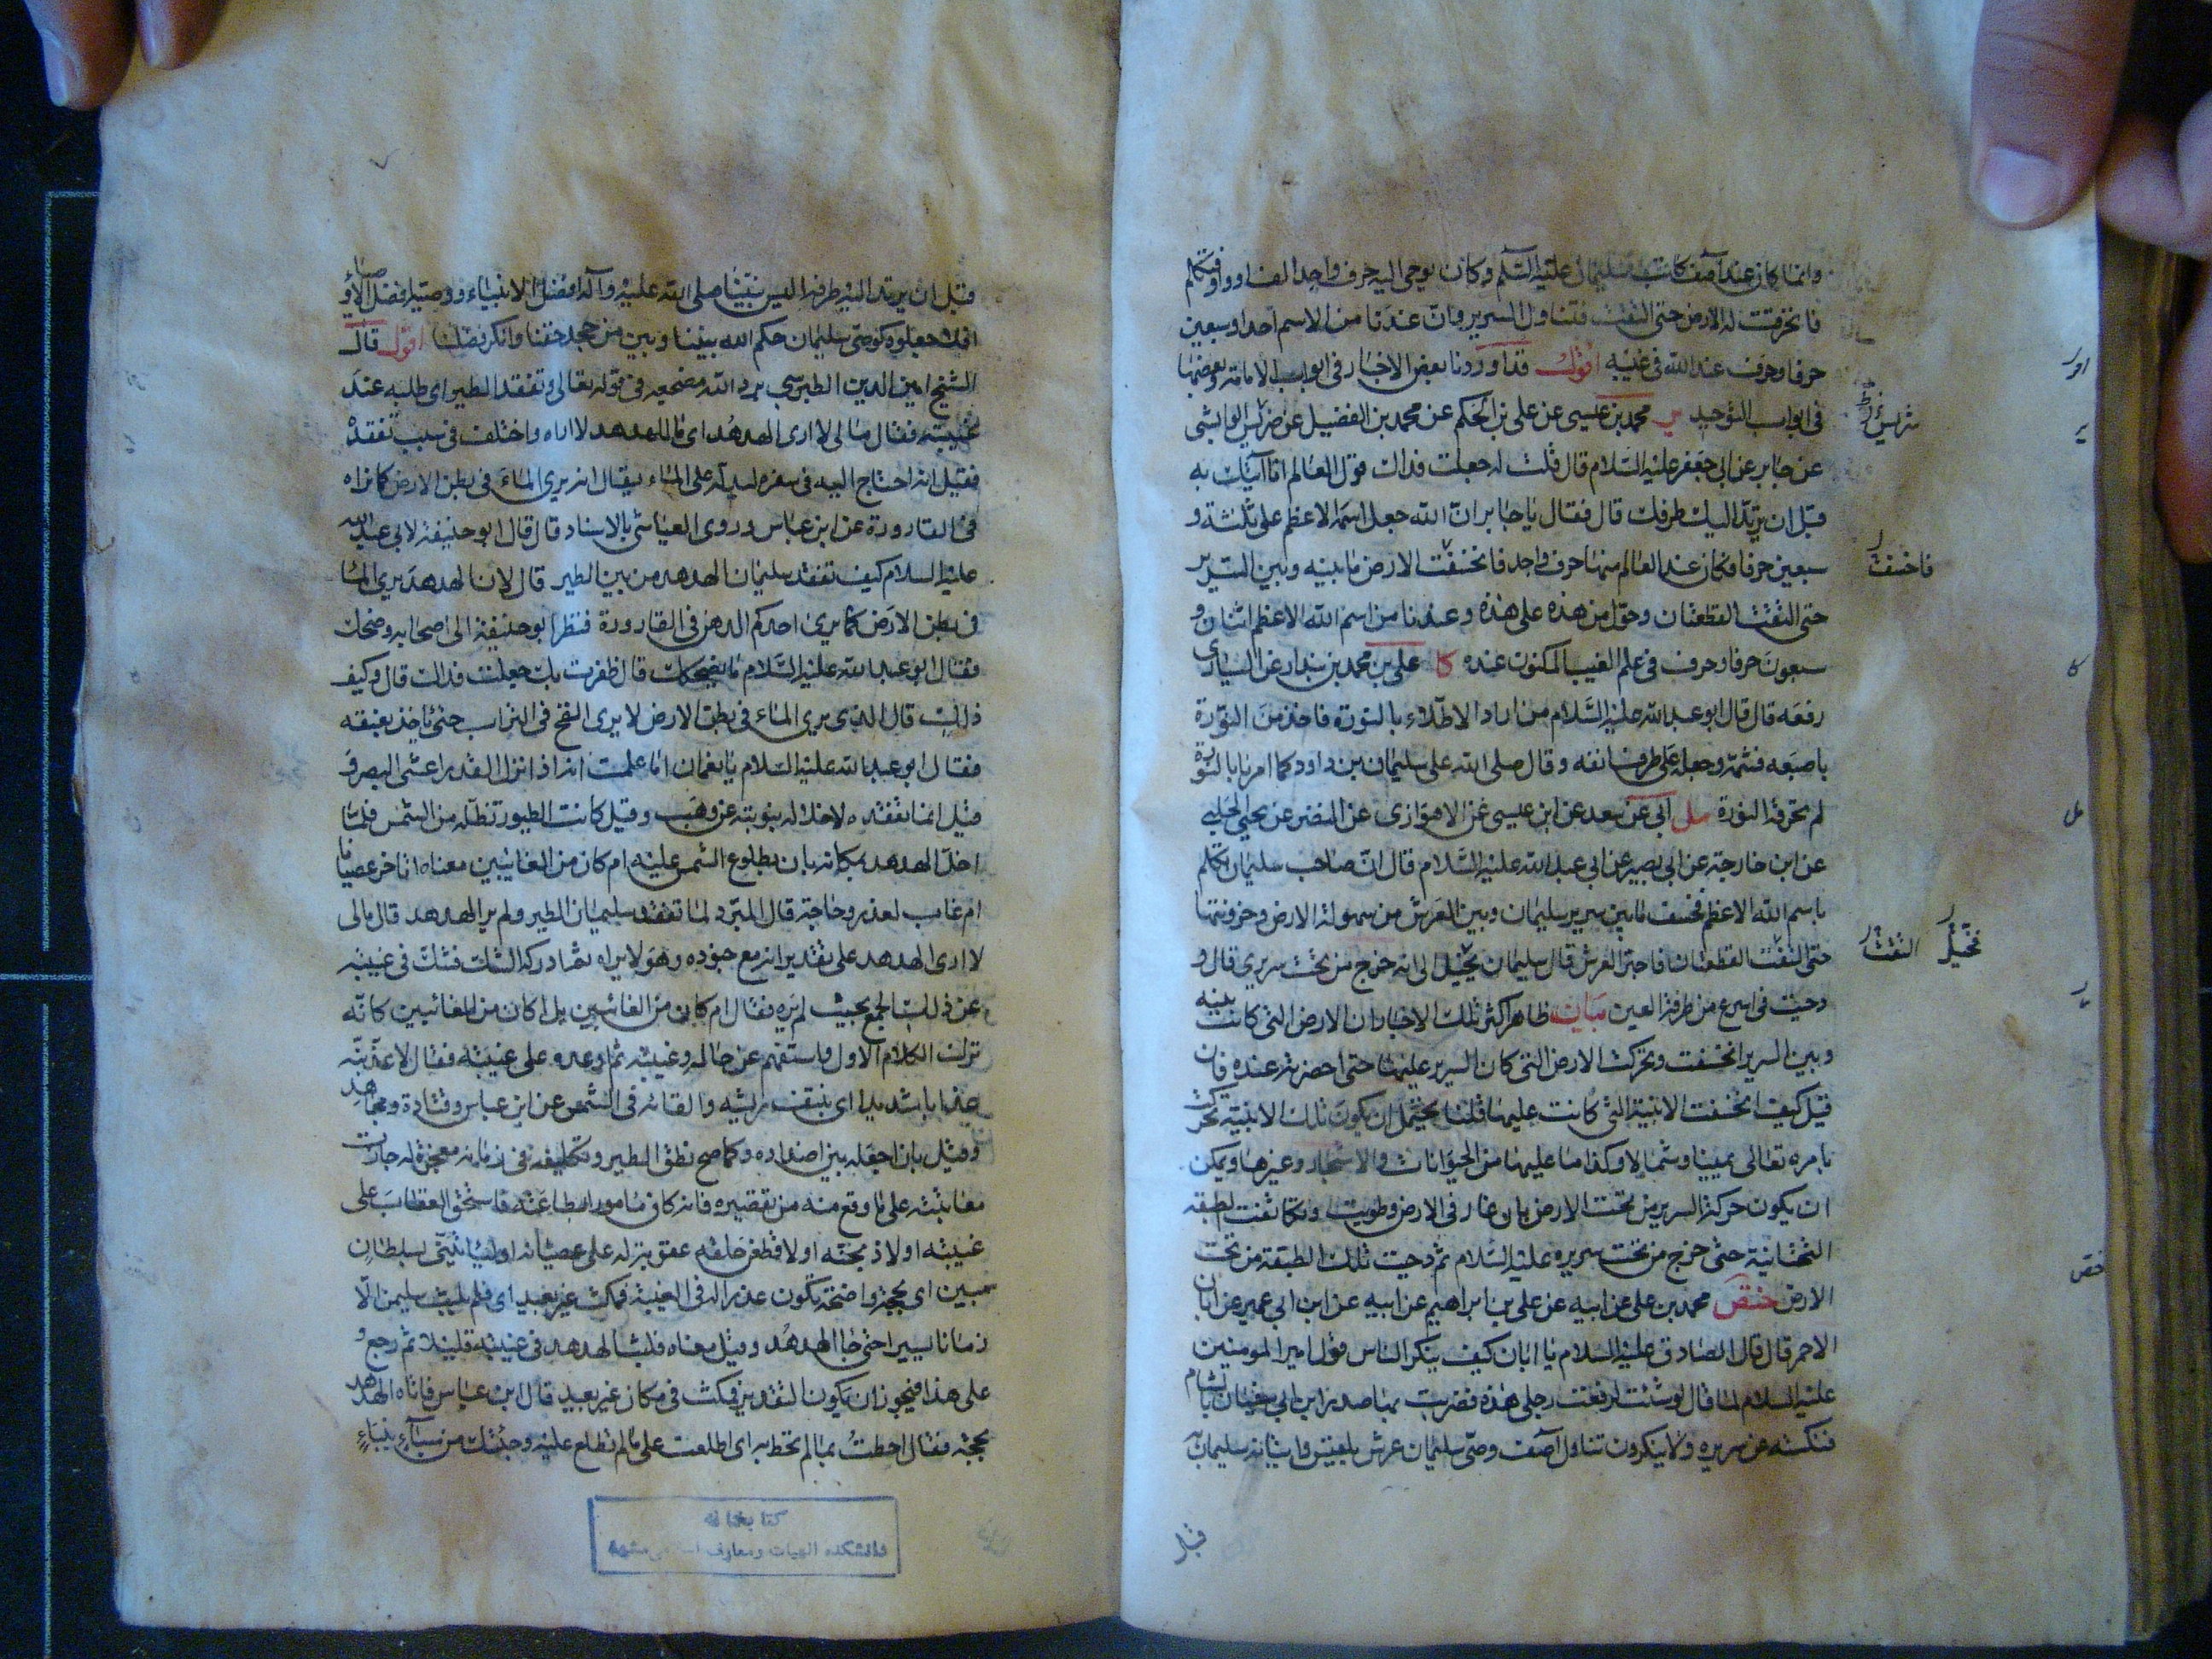 وانما كان عند آصف كاتب سليمان عليه السلم وكان يوحى اليه حرف واحد الف او واو فتكلم
فانخرقت له الارض حتى التفت فتناول السرير وان عندنا من الاسم احدا وسبعين
حرفا وحرف عند الله في غيبه اقول قد اوردنا بعض الاخبار في ابواب الامامة وبعضها
في ابواب التوحيد ير محمد بن عيسى عن علي بن الحكم عن محمد بن الفضيل عن ضريس الوابشي
عن جابر عن ابي جعفر عليه السلام قال قلت له جعلت فداك قول العالم انا آتيك به
قبل ان يرتد اليك طرفك قال فقال يا جابر ان الله جعل اسمه الاعظم على ثلثة و
سبعين حرفا فكان عند العالم منها حرف واحد فانخسفت الارض ما بينه وبين السرير
حتى التفت القطعتان وحول من هذه على هذه وعندنا من اسم الله الاعظم اثنان و
سبعون حرفا وحرف في علم الغيب المكنون عنده كا علي بن محمد بن بندار عن السياري
رفعه قال قال ابو عبد الله عليه السلام من اراد الاطلاء بالنورة فاخذ من النورة
باصبعه فشمه وجعله على طرف انفه وقال صلى الله على سليمان بن داود كما امرنا بالنورة
لم تحرقه النورة مل ابي عن سعد عن ابن عيسى عن الاهوازي عن النضر عن يحيى الحلبي
عن ابن خارجة عن ابي بصير عن ابي عبد الله عليه السلام قال ان صاحب سليمان تكلم
باسم الله الاعظم فخسف ما بين سرير سليمان وبين العرش من سهولة الارض وحزونتها
حتى التفت القطعتان فاجتر العرش قال سليمان يخيل الي انه خرج من تحت سريري قال و
دحيت في اسرع من طرفة العين بيان ظاهر اكثر تلك الاخبار ان الارض التي كانت بينه
وبين السرير انخسفت وتحركت الارض التي كان السرير عليها حتى احضرته عنده فان
قيل كيف انخسفت الابنية التي كانت عليها قلنا يحتمل ان يكون تلك الابنية تحركت
بامره تعالى يمينا وشمالا وكذا ما عليها من الحيوانات والاشجار وغيرها ويمكن
ان يكون حركة السرير من تحت الارض بان غار في الارض وطويت وتكاثفت الطبقة
التحتانية حتى خرج من تحت سريره عليه السلام ثم دحيت تلك الطبقة من تحت
الارض ختص محمد بن علي عن ابيه عن علي بن ابراهيم عن ابيه عن ابن ابي عمير عن ابان
الاحمر قال قال الصادق عليه السلام يا ابان كيف ينكر الناس قول امير المومنين
عليه السلام لما قال لو شئت لرفعت رجلي هذه فضربت بها صدر ابن ابي سفيان بالشام
فنكسته عن سريره ولا ينكرون تناول آصف وصي سليمان عرش بلقيس واتيانه سليمان به
قبل
فاخسفت
يخيل
التفت
ير
كا
مل
ختص
قبل ان يرتد اليه طرفه اليس نبينا صلى الله عليه وآله افضل الانبياء ووصيه افضل الاوصياء
افلا جعلوه كوصي سليمان حكم الله بيننا وبين من جحد حقنا وانكر فضلنا اقول قال
الشيخ امين الدين الطبرسي برد الله مضجعه في قوله تعالى وتفقد الطير اي طلبه عند
غيبته فقال مالي لا ارى الهدهد اي ما للهدهد لا اراه واختلف في سبب تفقده
فقيل انه احتاج اليه في سفره ليدله على الماء يقال انه يرى الماء في بطن الارض كما نراه
في القارورة عن ابن عباس وروى العياشي بالاسناد قال قال ابو حنيفة لابي عبد الله
عليه السلام كيف تفقد سليمان الهدهد من بين الطير قال لان الهدهد يرى الماء
في بطن الارض كما يرى احدكم الدهن في القارورة فنظر ابو حنيفة الى اصحابه وضحك
فقال ابو عبد الله عليه السلام ما يضحكك قال ظفرت بك جعلت فداك قال وكيف
ذلك قال الذي يرى الماء في بطن الارض لا يرى الفخ في التراب حتى ياخذ بعنقه
فقال ابو عبد الله عليه السلام يا نعمان اما علمت انه اذا نزل القدر اعشى البصر و
قيل انما تفقده لاخلاله بنوبته عن وهب وقيل كانت الطيور تظله من الشمس فلما
اخل الهدهد بمكانه بان بطلوع الشمس عليه ام كان من الغائبين معناه اتاخر عصيانا
ام غاب لعذر وحاجة قال المبرد لما تفقد سليمان الطير ولم ير الهدهد قال مالي
لا ارى الهدهد على تقدير انه مع جنوده وهو لا يراه ثم ادركه الشك فشك في غيبته
عن ذلك الجمع بحيث لم يره فقال ام كان من الغائبين بل اكان من الغائبين كانه
ترك الكلام الاول واستفهم عن حاله وغيبته ثم اوعده على غيبته فقال لاعذبنه
عذابا شديدا اي بنتف ريشه والقائه في الشمس عن ابن عباس وقتادة ومجاهد
وقيل بان اجعله بين اضداده وكما صح نطق الطير وتكليفه في زمانه معجزة له جازت
معاتبته على ما وقع منه من تقصيره فانه كان مامورا بطاعته فاستحق العقاب على
غيبته او لاذبحنه او لاقطعن حلقه عقوبة له على عصيانه او لياتيني بسلطان
مبين اي بحجة واضحة تكون عذرا له في الغيبة فمكث غير بعيد اي فلم يلبث سليمن الا
زمانا يسيرا حتى جاء الهدهد وقيل معناه فلبث الهدهد في غيبته قليلا ثم رجع و
على هذا فيجوز ان يكون التقدير فمكث في مكان غير بعيد قال ابن عباس فاتاه الهدهد
بحجة فقال احطت بما لم تحط به اي اطلعت على ما لم تطلع عليه وجئتك من سبأ بنبأ
كتابخانه
دانشكده الهيات ومعارف اسلامى مشهد